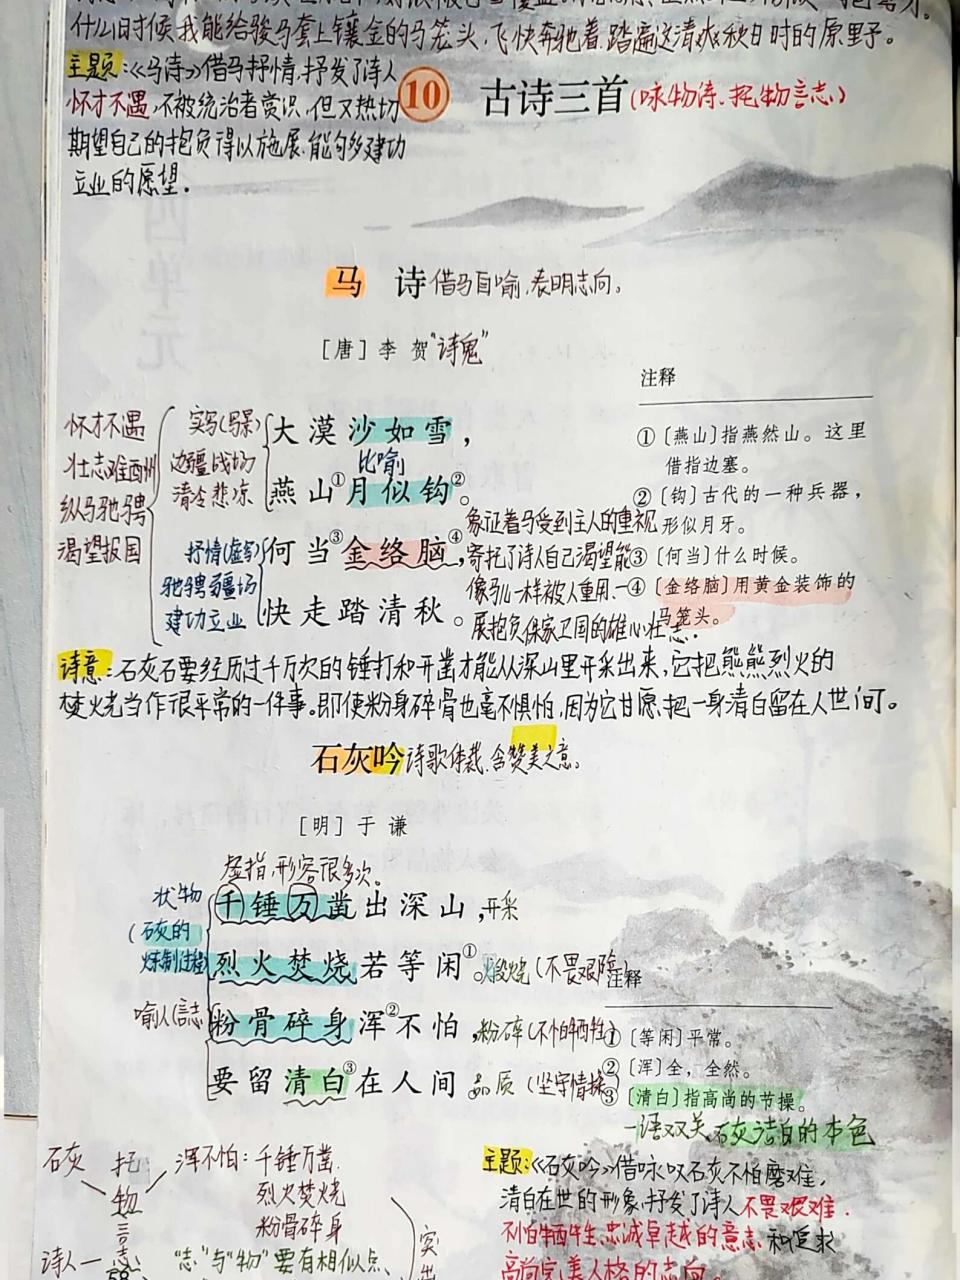 什么时候我能给骏马套上镶金的马笼头,飞快奔驰着,踏遍这清爽秋日时的原野。
主题:《马诗》借马抒情,抒发了诗人
怀才不遇,不被统治者赏识,但又热切
期望自己的抱负得以施展,能够多建功
立业的愿望.
10 古诗三首(咏物诗.托物言志)
马 诗 借马自喻.表明志向。
[唐] 李 贺 "诗鬼"
注释
怀才不遇
壮志难酬
纵马驰骋
渴望报国
实写(写景)
边疆战场
清冷悲凉
抒情(虚写)
驰骋疆场
建功立业
大漠沙如雪,
比喻
燕山①月似钩②。
何当③金络脑④,
快走踏清秋。
象证着马受到主人的重视
寄托了诗人自己渴望能
像马儿一样被人重用.一
展抱负保家卫国的雄心壮志.
①〔燕山〕指燕然山。这里
借指边塞。
②〔钩〕古代的一种兵器,
形似月牙。
③〔何当〕什么时候。
④〔金络脑〕用黄金装饰的
马笼头。
诗意:石灰石要经历过千万次的锤打和开凿才能从深山里开采出来,它把熊熊烈火的
焚火烧当作很平常的一件事。即使粉身碎骨也毫不惧怕,因为它甘愿把一身清白留在人世间。
石灰吟 诗歌体裁.含赞美之意。
[明] 于 谦
虚指,形容很多次。
状物
(石灰的
炼制过程)
喻人(言志)
千锤万凿出深山,开采
烈火焚烧若等闲①。煅烧(不畏艰险)
粉骨碎身浑②不怕,粉碎(不怕牺牲)
要留清白③在人间。品质(坚守情操)
注释
①〔等闲〕平常。
②〔浑〕全,全然。
③〔清白〕指高尚的节操。
一语双关,石灰洁白的本色
石灰 托物言志
浑不怕:千锤万凿
烈火焚烧
粉骨碎身
诗人一
"志"与"物"要有相似点、
58
突出
主题:《石灰吟》借咏叹石灰不怕磨难,
清白在世的形象,抒发了诗人不畏艰难.
不怕牺牲.忠诚卓越的意志和追求
高尚完美人格的志向。